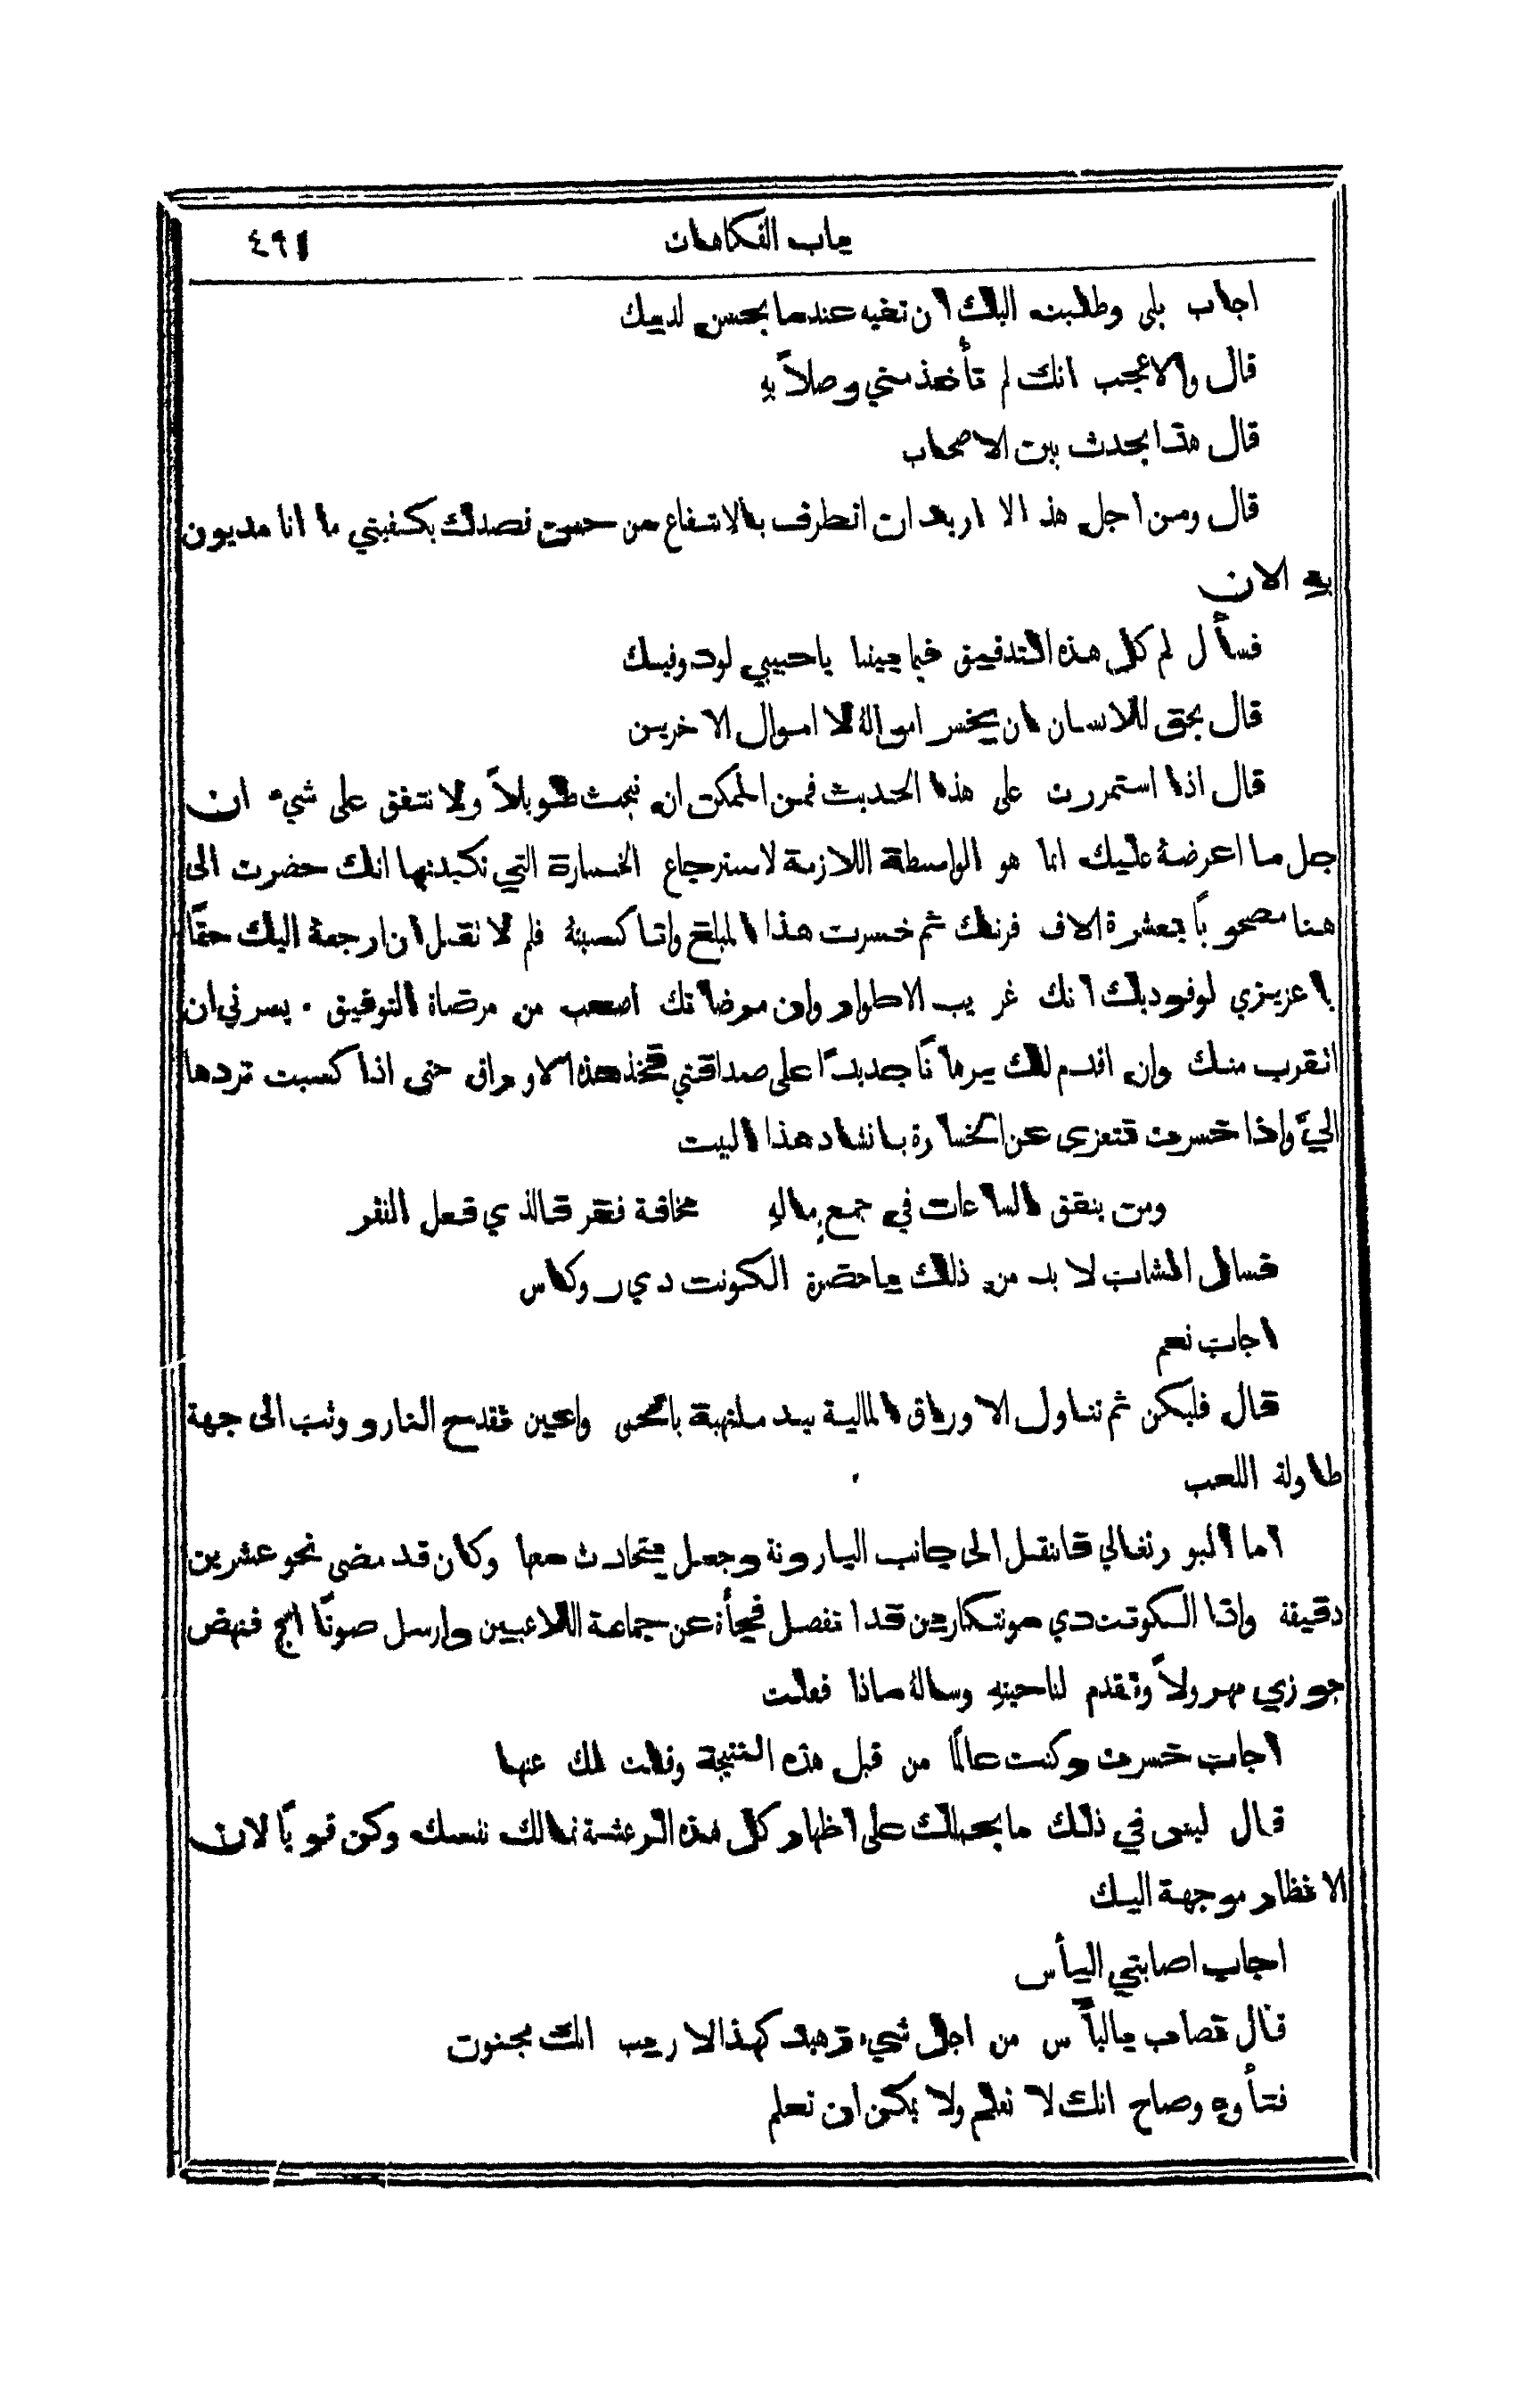 باب الفكاهات
٤٩١
اجاب بلى وطلبت اليك ان تفيه عندما يحسن لديك
قال والاعجب انك لم تأخذ مني وصلاً به
قال هذا يحدث بين الاصحاب
قال ومن اجل هذا لا اريد ان انطرف بالانتفاع من حسن قصدك يكفيني ما انا مديون
به الان
فسأل لم كل هذه التدقيق فيما بيننا يا حبيبي لودوفيك
قال يحق للانسان ان يخسر اموالهُ لا اموال الاخرين
قال اذا استمررت على هذا الحديث فمن الممكن ان نبحث طويلاً ولا نتفق على شيء ان
جل ما اعرضهُ عليك انما هو الواسطة اللازمة لاسترجاع الخسارة التي تكبدتها انك حضرت الى
هنا مصحوباً بعشرة الاف فرنك ثم خسرت هذا المبلغ وانا كسبتهُ فلم لا تقبل ان ارجعهُ اليك حقًّا
يا عزيزي لودوفيك انك غريب الاطوار وان مرضاتك اصعب من مرضاة التوفيق . يسرني ان
اتقرب منك وان اقدم لك برهاناً جديداً على صداقتي فخذ هذه الاوراق حتى اذا كسبت تردها
اليَّ واذا خسرت فتعزى عن الخسارة بانشاد هذا البيت
ومن ينفق الساعات في جمع مالهِ مخافة فقر فالذي فعل الفقر
فسال الشاب لا بد من ذلك يا حضرة الكونت دي روكاس
اجاب نعم
قال فليكن ثم تناول الاوراق المالية بيد ملتهبة بالحمى واعين تقدح النار ووثب الى جهة
طاولة اللعب
اما البورتغالي فانتقل الى جانب البارونة وجعل يتحادث معها وكان قد مضى نحو عشرين
دقيقة واذا الكونت دي مونتكارين قد انفصل فجأة عن جماعة اللاعبين وارسل صوتاً ابح فنهض
جوزي مهرولاً وتقدم لناحيتهِ وسالهُ ماذا فعلت
اجاب خسرت وكنت عالماً من قبل هذه النتيجة وقلت لك عنها
قال ليس في ذلك ما يحملك على اظهار كل هذه الرعشة تمالك نفسك وكن قوياً لان
الانظار موجهة اليك
اجاب اصابني اليأس
قال تصاب باليأس من اجل شيء زهيد كهذا لا ريب انك مجنون
فتأوه وصاح انك لا تعلم ولا يمكن ان تعلم